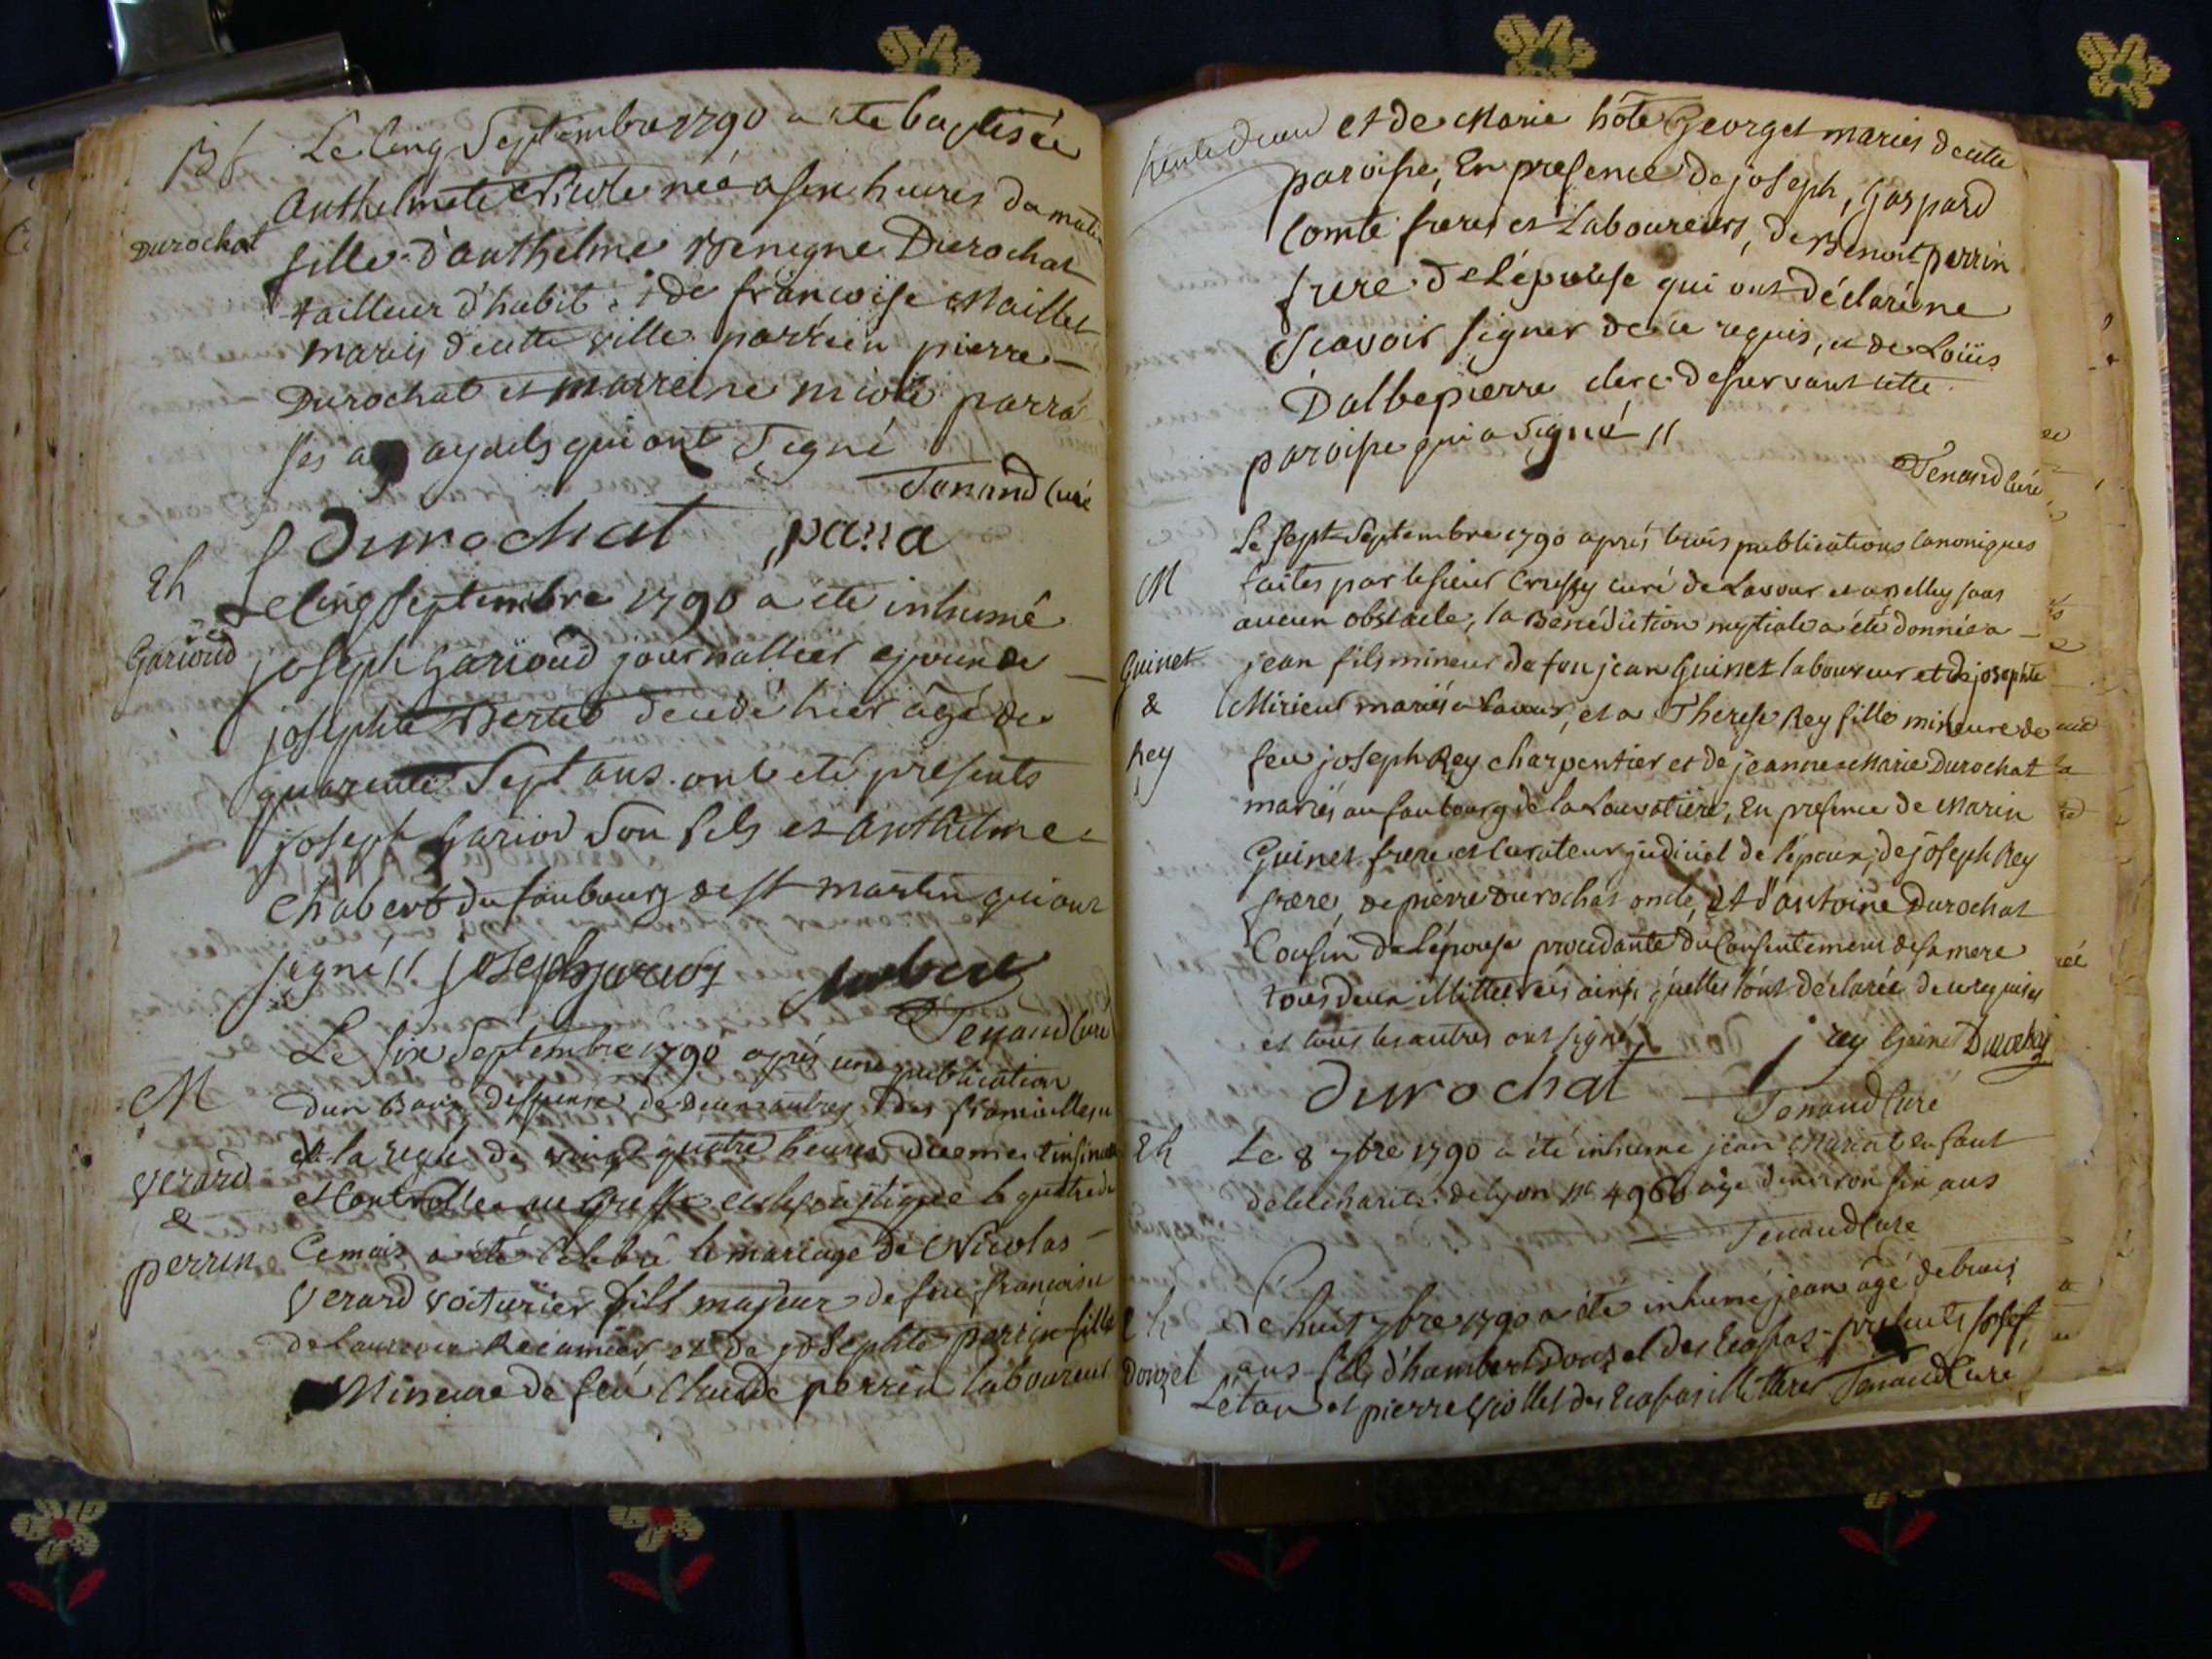 Bt Le Cinq Septembre 1790 a été baptisée
Anthelmette Nicole née a six heures du matin
Durochat
fille d'anthelme Benigne Durochat
tailleur d'habit & de françoise Maillet
mariés de cette ville parrein pierre
Durochat et marreine nicole parra
ses ayeuls qui ont Signé
Tenand Curé
Durochat parra
Eh
Le Cinq Septembre 1790 a été inhumé
Garioud
joseph Garioud journallier epoux de
josephte Bertet decedé hier âgé de
quarente Sept ans. ont eté présents
joseph Gariod Son fils et Anthelme
Chabert du faubourg de St martin qui ont
signé // joseph
Tenand Curé
Le six Septembre 1790 après une publication
M
d'un Banc, dispense de deux autres, des fiançailles
et la regle de vingt quatre heures
Verard
et Controllée au Greffe ecclesiastique le quatre de
&
perrin
Ce mois a été Celebré le mariage de Nicolas
Verard voiturier fils majeur de feu françois et
de Récamier et de josephte perrin fille
Mineure de feu Claude perrin laboureur
et de Marie hôte Georget mariés de cette
paroisse, En presence de joseph, Gaspard
Comte freres et Laboureurs, de Benoit perrin
frere de Lépouse qui ont déclaré ne
Scavoir signer de ce requis, et de Loüis
Dalbepierre clerc desservant cette
paroisse qui a Signé //
Tenand Curé
Le sept Septembre 1790 après trois publications Canoniques
M
faites par le sieur Crussy curé de Lavour et a Belley sans
aucun obstacle, la Bénédiction nuptiale a été donnée a
Guinet
jean fils mineur de feu jean Guinet laboureur et de josephte
&
Mirieu mariés a Lavour, et a Therese Rey fille mineure de
Rey
feu joseph Rey charpentier et de jeanne Marie Durochat
mariés au faubourg de la Louvatiere, En presence de Marin
Guinet frere et Curateur judiciel de l'epoux, de joseph Rey
frere, de pierre Durochat oncle, et d'antoine Durochat
Cousin de Lépouse procedante du Consentement de sa mere
tous deux Illitterés ainsi qu'elles l'ont déclarée de ce requises
et tous les autres ont signé
j rey Guinet Durochat
Durochat
Tenand Curé
Eh
Le 8 7bre 1790 a été inhumé jean enfant
de la charité de Lyon no 4966 âgé d'environ six ans
Tenand Curé
Eh
Le huit 7bre 1790 a été inhumé jean âgé de trois
Douzel
ans fils d'humbert Douzel des Ecassas présents josef
Létan et pierre Viollet des Ecassas illitteres Tenand Curé